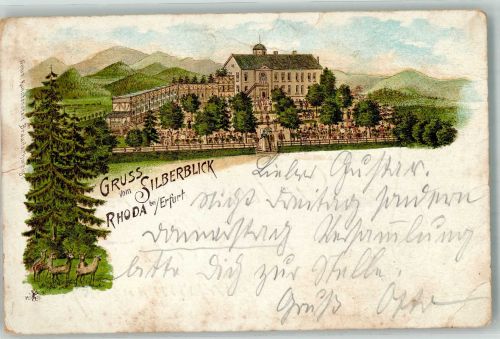 GRUSS
vom SILBERBLICK
RHODA bei/Erfurt
Lieber Gustav.
Nicht Freitag sondern
Donnerstag Versammlung
bitte Dich zur Stelle.
Gruß Otto